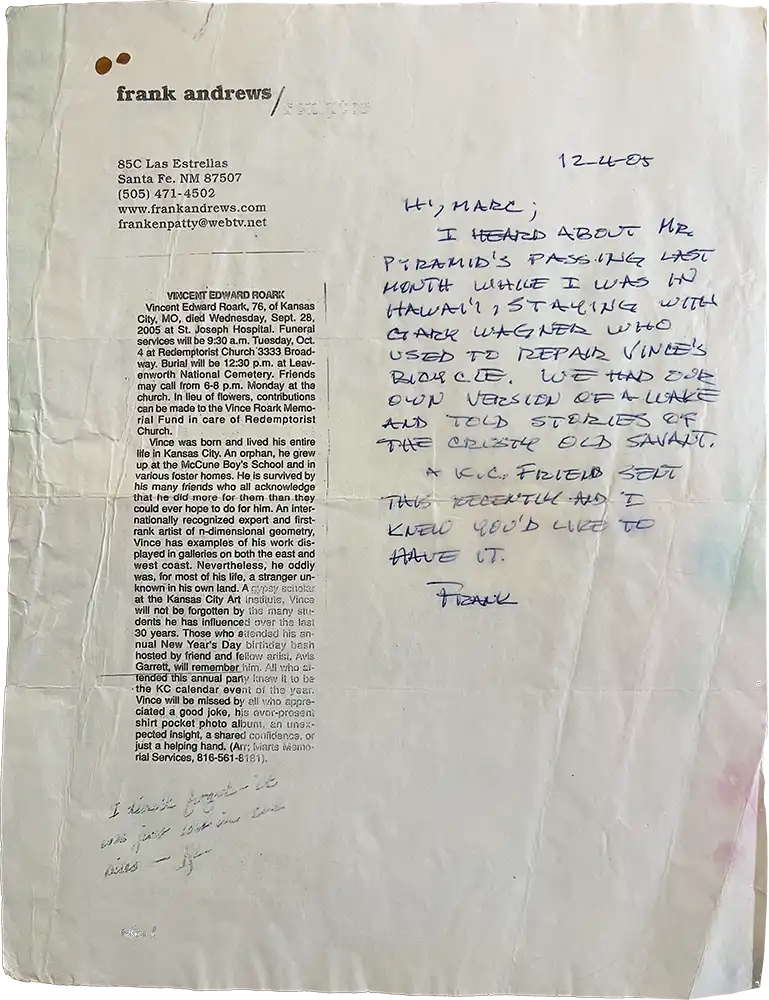 frank andrews/
85C Las Estrellas
Santa Fe. NM 87507
(505) 471-4502
www.frankandrews.com
frankenpatty@webtv.net
VINCENT EDWARD ROARK
Vincent Edward Roark, 76, of Kansas
City, MO, died Wednesday, Sept. 28,
2005 at St. Joseph Hospital. Funeral
services will be 9:30 a.m. Tuesday, Oct.
4 at Redemptorist Church 3333 Broad-
way. Burial will be 12:30 p.m. at Leav-
enworth National Cemetery. Friends
may call from 6-8 p.m. Monday at the
church. In lieu of flowers, contributions
can be made to the Vince Roark Memo-
rial Fund in care of Redemptorist
Church.
Vince was born and lived his entire
life in Kansas City. An orphan, he grew
up at the McCune Boy's School and in
various foster homes. He is survived by
his many friends who all acknowledge
that he did more for them than they
could ever hope to do for him. An inter-
nationally recognized expert and first-
rank artist of n-dimensional geometry,
Vince has examples of his work dis-
played in galleries on both the east and
west coast. Nevertheless, he oddly
was, for most of his life, a stranger un-
known in his own land. A gypsy scholar
at the Kansas City Art Institute, Vince
will not be forgotten by the many stu-
dents he has influenced over the last
30 years. Those who attended his an-
nual New Year's Day birthday bash
hosted by friend and fellow artist, Avis
Garrett, will remember him. All who at-
tended this annual party knew it to be
the KC calendar event of the year.
Vince will be missed by all who appre-
ciated a good joke, his ever-present
shirt pocket photo album, an unex-
pected insight, a shared confidence, or
just a helping hand. (Arr; Marts Memo-
rial Services, 816-561-8181).
I didn't forget - it
was just lost in the
12-4-05
HI, MARC;
I HEARD ABOUT MR.
PYRAMID'S PASSING LAST
MONTH WHILE I WAS IN
HAWAI'I, STAYING WITH
GARY WAGNER WHO
USED TO REPAIR VINCE'S
BICYCLE. WE HAD OUR
OWN VERSION OF A WAKE
AND TOLD STORIES OF
THE CRUSTY OLD SAVANT.
A K.C. FRIEND SENT
THIS RECENTLY AND I
KNEW YOU'D LIKE TO
HAVE IT.
FRANK